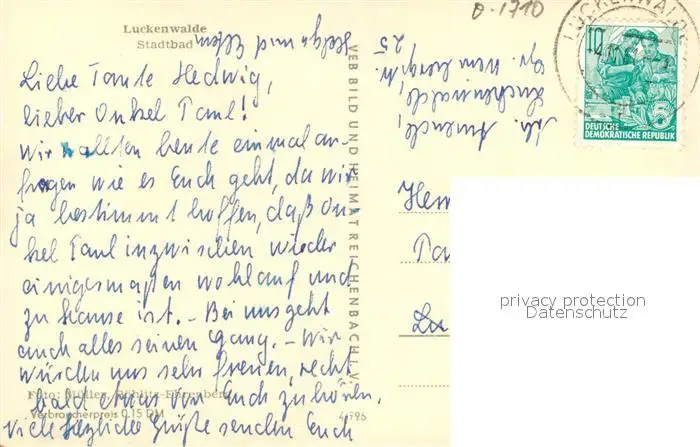 Luckenwalde
Stadtbad
Liebe Tante Hedwig,
lieber Onkel Paul!
Wir wollten heute einmal an-
fragen wie es Euch geht, da wir
ja bestimmt hoffen, daß On-
kel Paul inzwischen wieder
einigermaßen wohlauf und
zu Hause ist. – Bei uns geht
auch alles seinen Gang. – Wir
würden uns sehr freuen, recht
bald etwas von Euch zu hören.
Viele herzliche Grüße senden Euch
Helga und Eltern
Foto: Müller,
Verbraucherpreis 0,15 DM
VEB BILD UND HEIMAT REICHENBACH I. V.
Luckenwalde,
25
0-1710
LUCKENWALDE
10
DEUTSCHE
DEMOKRATISCHE REPUBLIK
privacy protection
Datenschutz